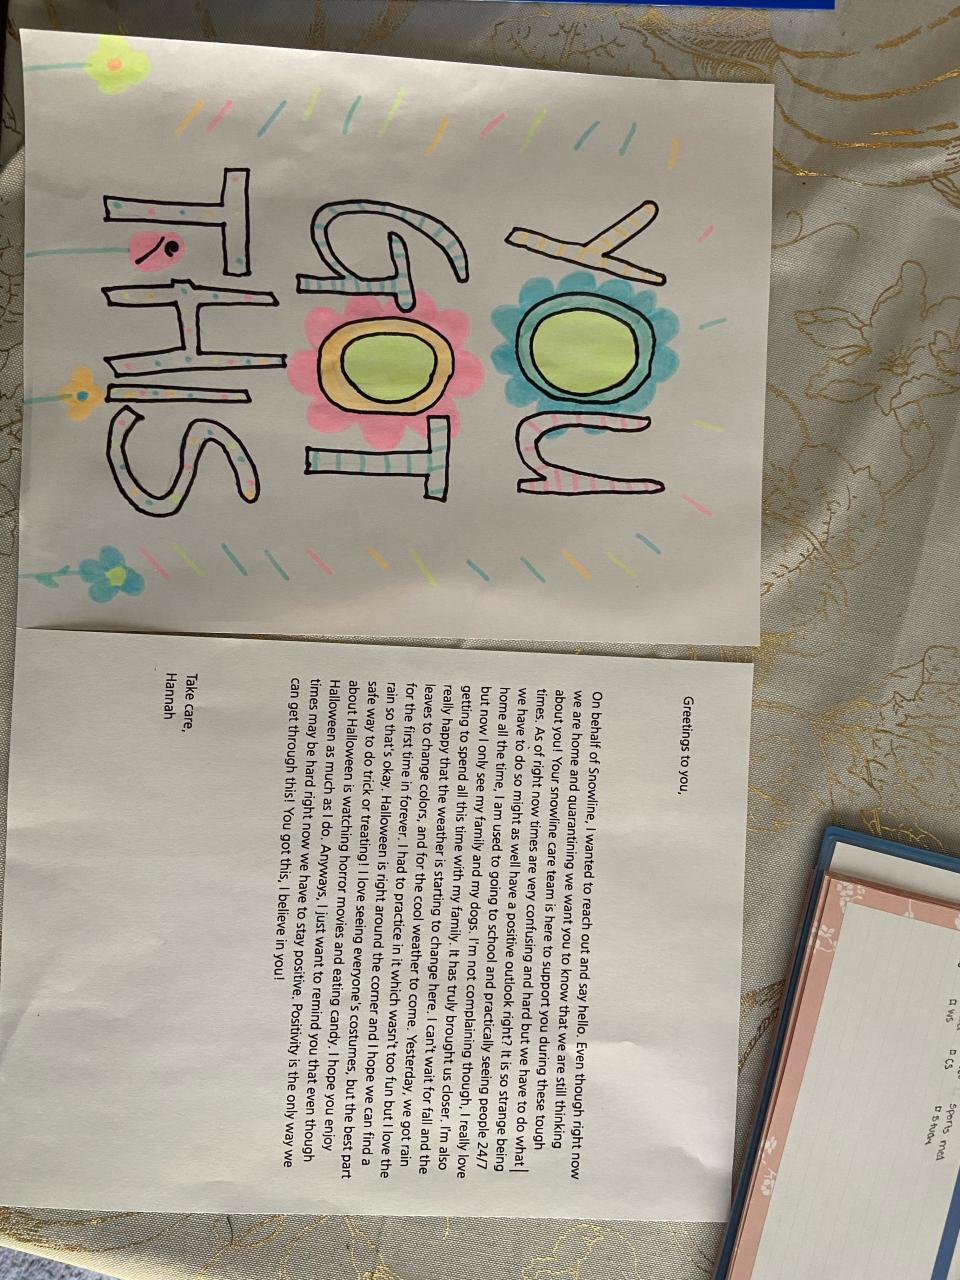 YOU
GOT
THIS
Greetings to you,
On behalf of Snowline, I wanted to reach out and say hello. Even though right now
we are home and quarantining we want you to know that we are still thinking
about you! Your snowline care team is here to support you during these tough
times. As of right now times are very confusing and hard but we have to do what
we have to do so might as well have a positive outlook right? It is so strange being
home all the time, I am used to going to school and practically seeing people 24/7
but now I only see my family and my dogs. I'm not complaining though, I really love
getting to spend all this time with my family. It has truly brought us closer. I'm also
really happy that the weather is starting to change here. I can't wait for fall and the
leaves to change colors, and for the cool weather to come. Yesterday, we got rain
for the first time in forever. I had to practice in it which wasn't too fun but I love the
rain so that's okay. Halloween is right around the corner and I hope we can find a
safe way to do trick or treating! I love seeing everyone's costumes, but the best part
about Halloween is watching horror movies and eating candy. I hope you enjoy
Halloween as much as I do. Anyways, I just want to remind you that even though
times may be hard right now we have to stay positive. Positivity is the only way we
can get through this! You got this, I believe in you!
Take care,
Hannah
WS
CS
Sports med
Study